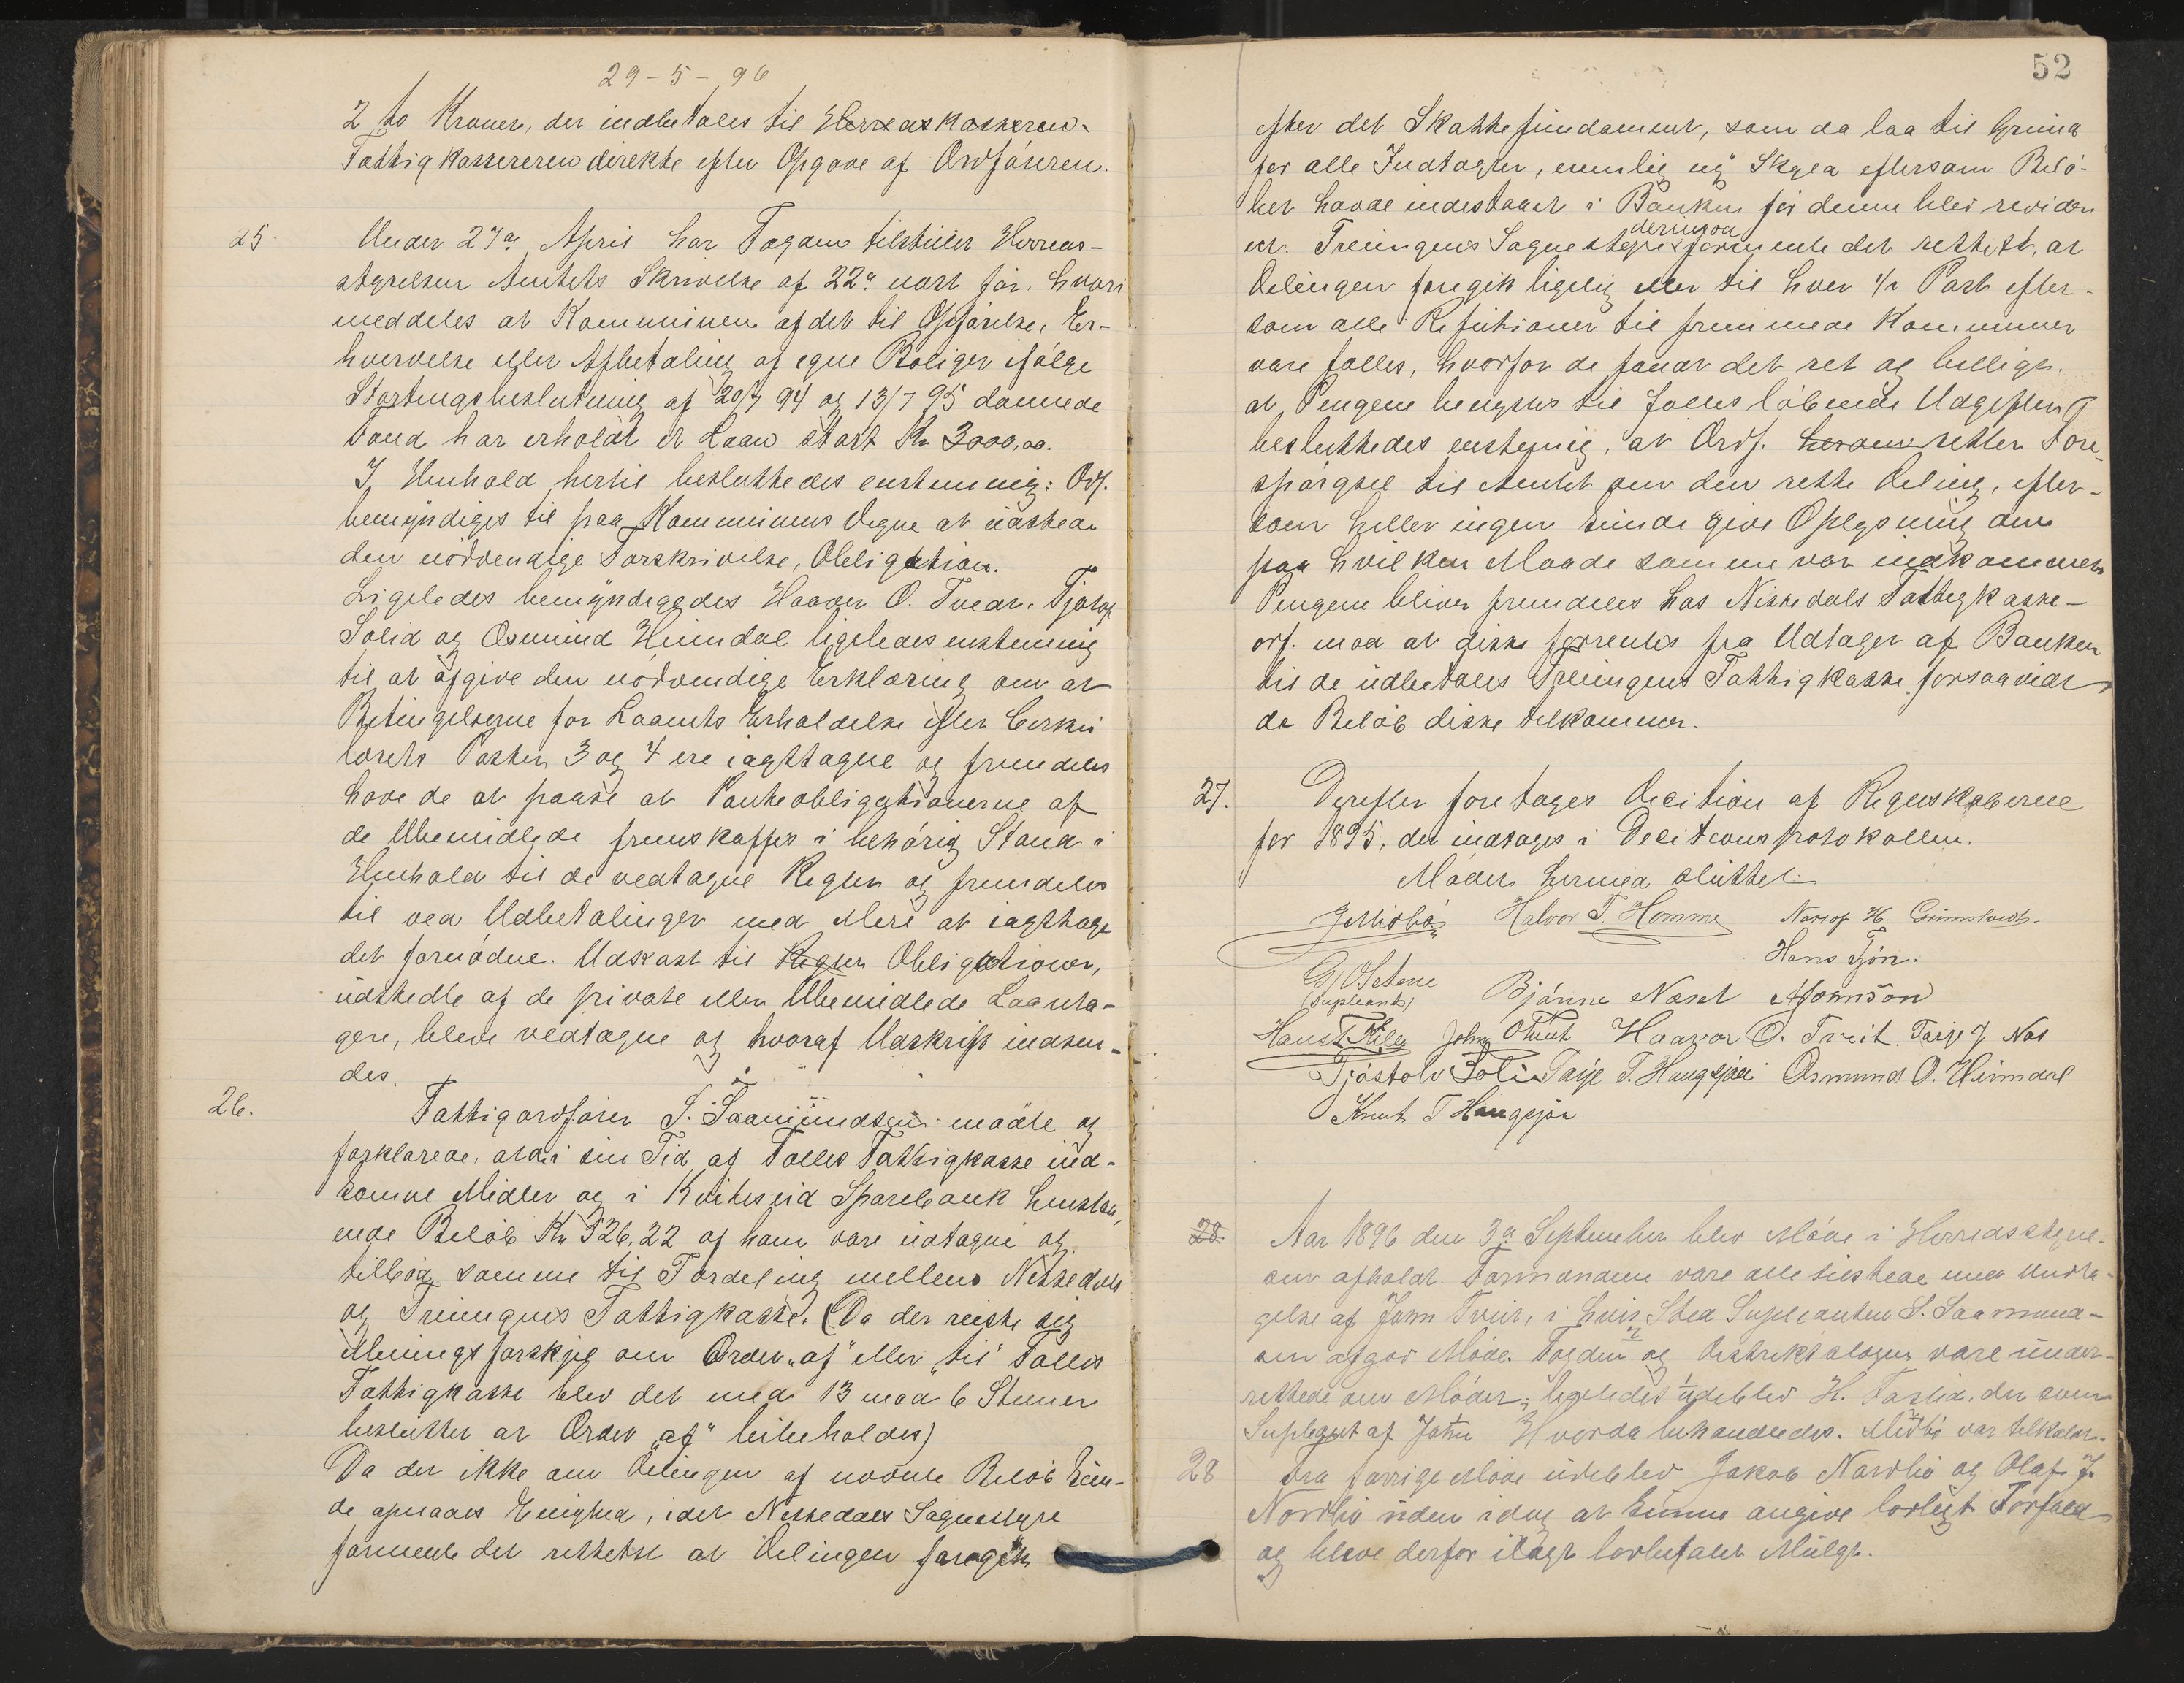 29-5-96
2 to Kroner, der indbetales til Herredskassereren.
Fattigkassereren direkte efter Opgave af Ordföreren.
25. Under 27de April har Fogden tilstillet Herreds-
styrelsen Amtets Skrivelse af 22de næst för, hvori
meddeles at Kommunen af det til Opförelse, Er-
hvervelse eller Afbetaling af egne Boliger ifölge
Stortingsbeslutning af 20/7 94 og 13/7 95 dannede
Fond har erholdt et Laan stort Kr 3000,00.
I Henhold hertil besluttedes enstemmig: Ordf.
bemyndiges til paa Kommunens Vegne at udstede
den nödvendige Forskrivelse, Obligation.
Ligeledes bemyndigedes Haavor O. Tveit, Tjöstolv
Solid og Osmund Heimdal ligeledes enstemmig
til at afgive den nödvendige Erklæring om at
Betingelserne for Laanets Erholdelse efter Cirku
lærets Poster 3 og 4 ere iagttagne og fremdeles
have de at paase at Panteobligationerne af
de Ubemidlede fremskaffes i behörig Stand i
Henhold til de vedtagne Regler og fremdeles
til ved Udbetalinger med Mere at iagttage
det fornödne. Udkast til Regler Obligationer,
udstedte af de private eller Ubemidlede Laanta-
gere, bleve vedtagne og hvoraf Udskrift indsen-
des.
26. Fattigordförer S. Saamundsen mödte og
forklarede, at de i sin Tid af Fælles Fattigkasse ind-
komne Midler og i Kviteseid Sparebank henstaa-
ende Belöb Kr 326,22 af ham vare udtagne og
tilböd samme til Fordeling mellem Nissedals
og Treungens Fattigkasse. (Da der reiste sig
Meningsforskjel om Ordet "af" eller "til" Fælles
Fattigkasse blev det med 13 mod 6 Stemmer
besluttet at Ordet "af" beibeholdes)
Da der ikke om Delingen af nævnte Belöb kun-
de opnaaes Enighed, idet Nissedals Sognestyre
formente det rettest at Delingen foregik
52
efter det Skattefundament, som da laa til Grund
for alle Indtægter, nemlig ny Skyld eftersom Belö-
bet havde indestaaet i Banken för denne blev revider
et. Treungens Sognestyre derimod formente det rettest, at
Delingen foregik ligelig eller til hver 1/2 Part efter-
som alle Refusioner til fremmede Kommuner
vare fælles, hvorfor de fandt det ret og billigt
at Pengene benyttes til fælles löbende Udgifter
besluttedes enstemmig, at Ordf. herom retter Fore-
spörgsel til Amtet om den rette Deling, efter-
som heller ingen kunde give Oplysning om
paa hvilken Maade samme var indkommet
Pengene bliver fremdeles hos Nissedals Fattigkasse-
orf. mod at disse forrentes fra Udtaget af Banken
til de udbetales Treungens Fattigkasse forsaavidt
de Belöb disse tilkommer.
27. Derefter foretages Decition af Regnskaberne
for 1895, der indtoges i Decitionsprotokollen.
Mödet hermed sluttet.
J Midbö Halvor T. Homme Nærof H. Grimstveit.
Hans Tjön.
G O Setane
(Supleant) Bjönne Næset A Jonnson
Hans T Kile John O Tveit Haavor O. Tveit. Tarje J Nes
Tjöstolv Solid Tarje T. Haugsjaa Osmund O. Heimdal
Knut T Haugsjaa
28. Aar 1896 den 3de September blev Möde i Herredsstyrel-
sen afholdt. Formændene vare alle tilstede med Undta-
gelse af John Tveit, i hvis Sted Supleanten S. Saamund-
sen afgav Möde. Fogden og Distriktslægen vare under-
rettede om Mödet; ligeledes udeblev H. Faslid, der som
Supleant af John Hvorda behandledes. Midbö var tilkaldt.
28 Fra forrige Möde udeblev Jakob Nordbö og Olaf J.
Nordbö uden idag at kunne angive lovligt Forfald
og bleve derfor ilagt lovbefalet Mulgt.